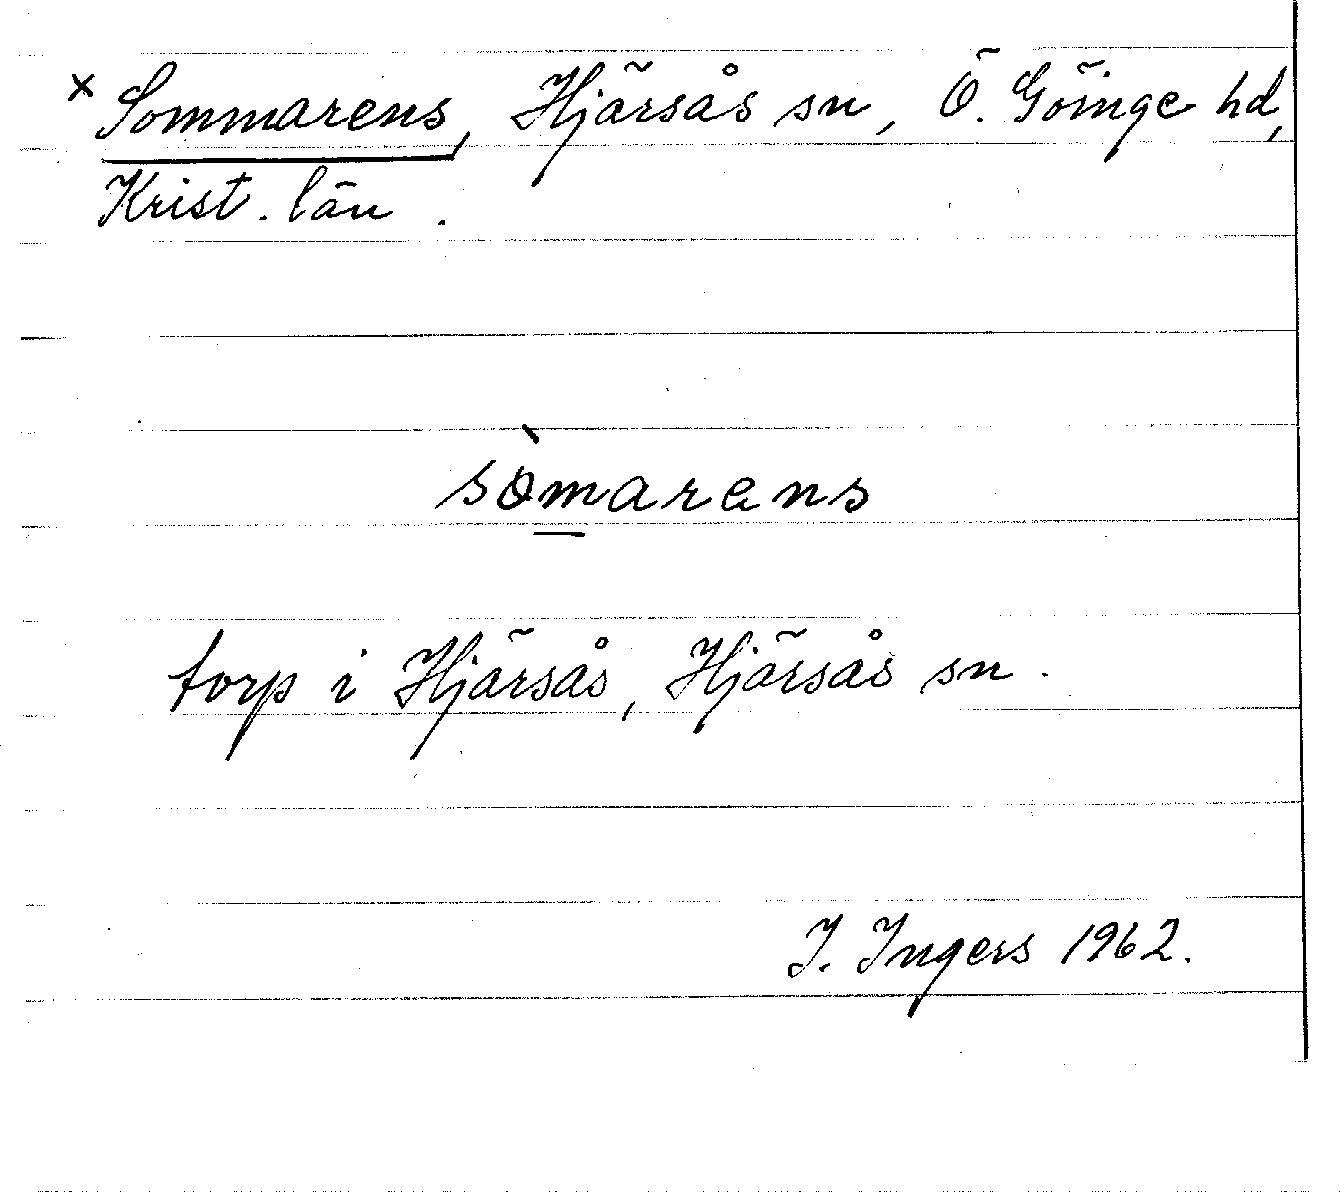 x Sommarens, Hjärsås sn, Ö. Göinge hd,
Krist. län.
sòmarens
torp i Hjärsås, Hjärsås sn.
I. Ingers 1962.